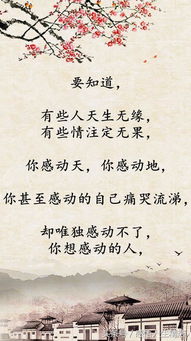 要知道，
有些人天生无缘，
有些情注定无果，
你感动天，你感动地，
你甚至感动的自己痛哭流涕，
却唯独感动不了，
你想感动的人，